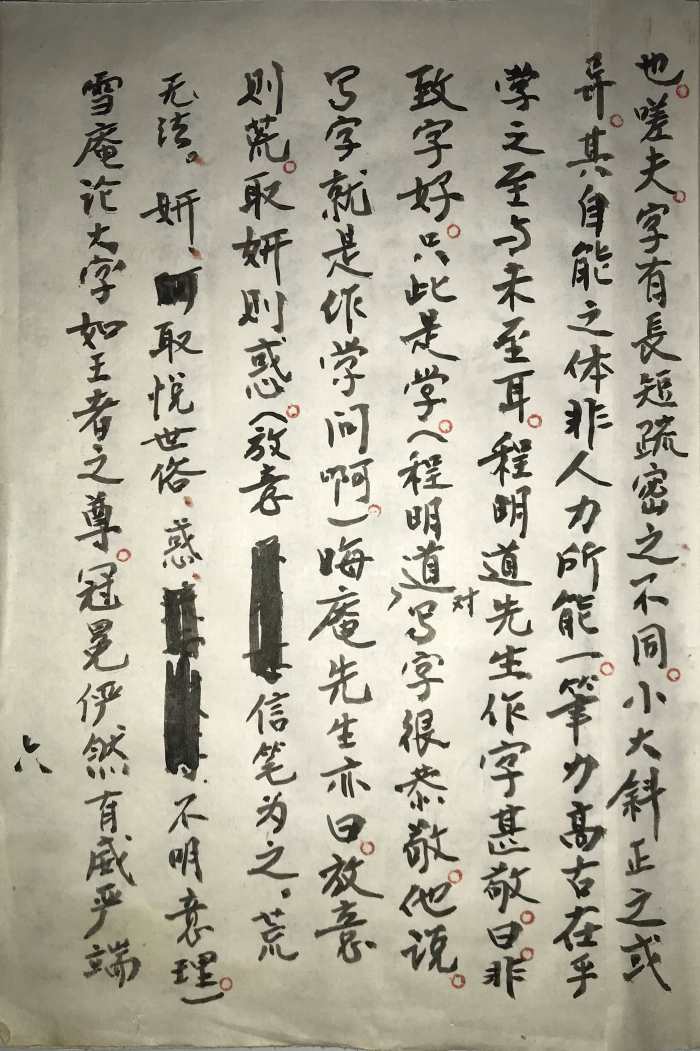 也。嗟夫。字有長短疏密之不同。小大斜正之或
异。其自能之体非人力所能一。筆力高古在乎
学之至与未至耳。程明道先生作字甚敬。曰。非
致字好。只此是学。（程明道，对写字很恭敬。他说。
写字就是作学问啊。）晦庵先生亦曰。放意
则荒。取妍则惑。（放意 信笔为之。荒
无法。妍、取悦世俗、惑、不明意理。）
雪庵论大字如王者之尊。冠冕俨然有威严端
六